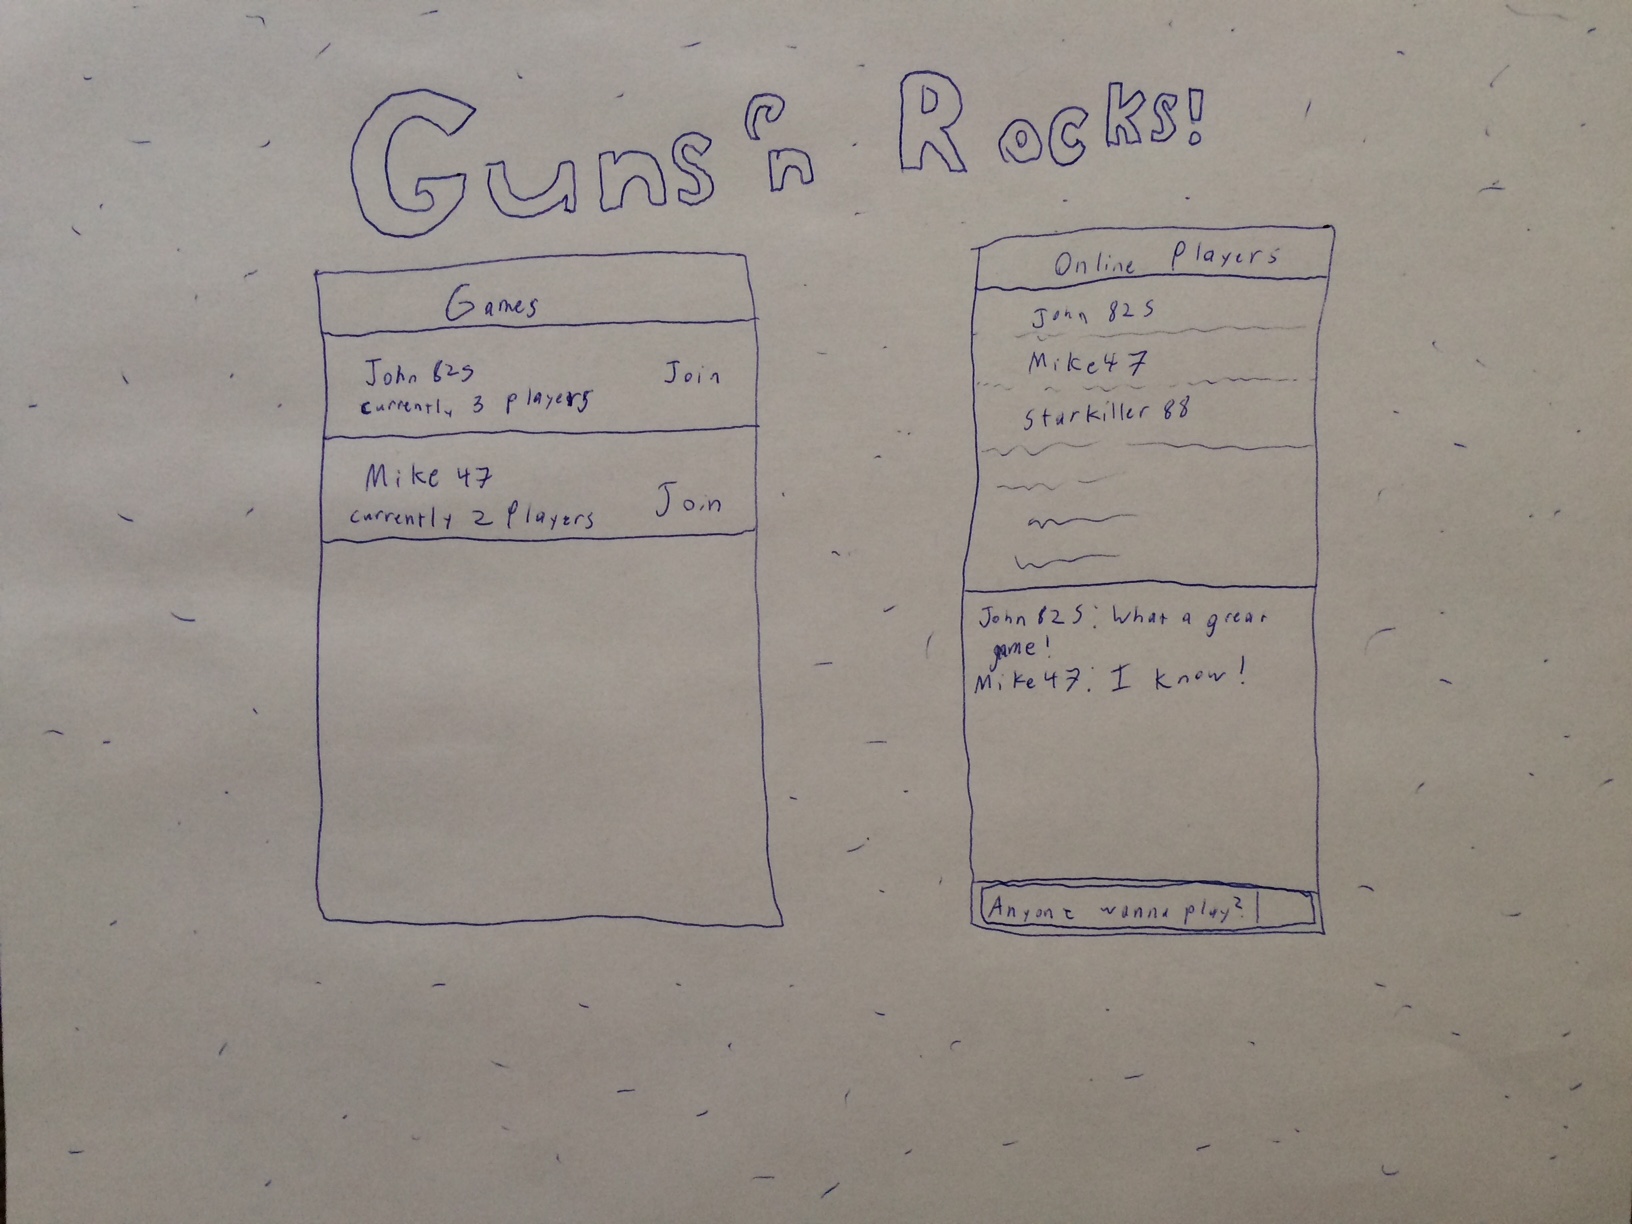 Guns n Rocks!
Games
John 825
currently 3 players
Join
Mike 47
currently 2 players
Join
Online Players
John 825
Mike47
Starkiller 88
John 825: What a great
game!
Mike47: I know!
Anyone wanna play?|